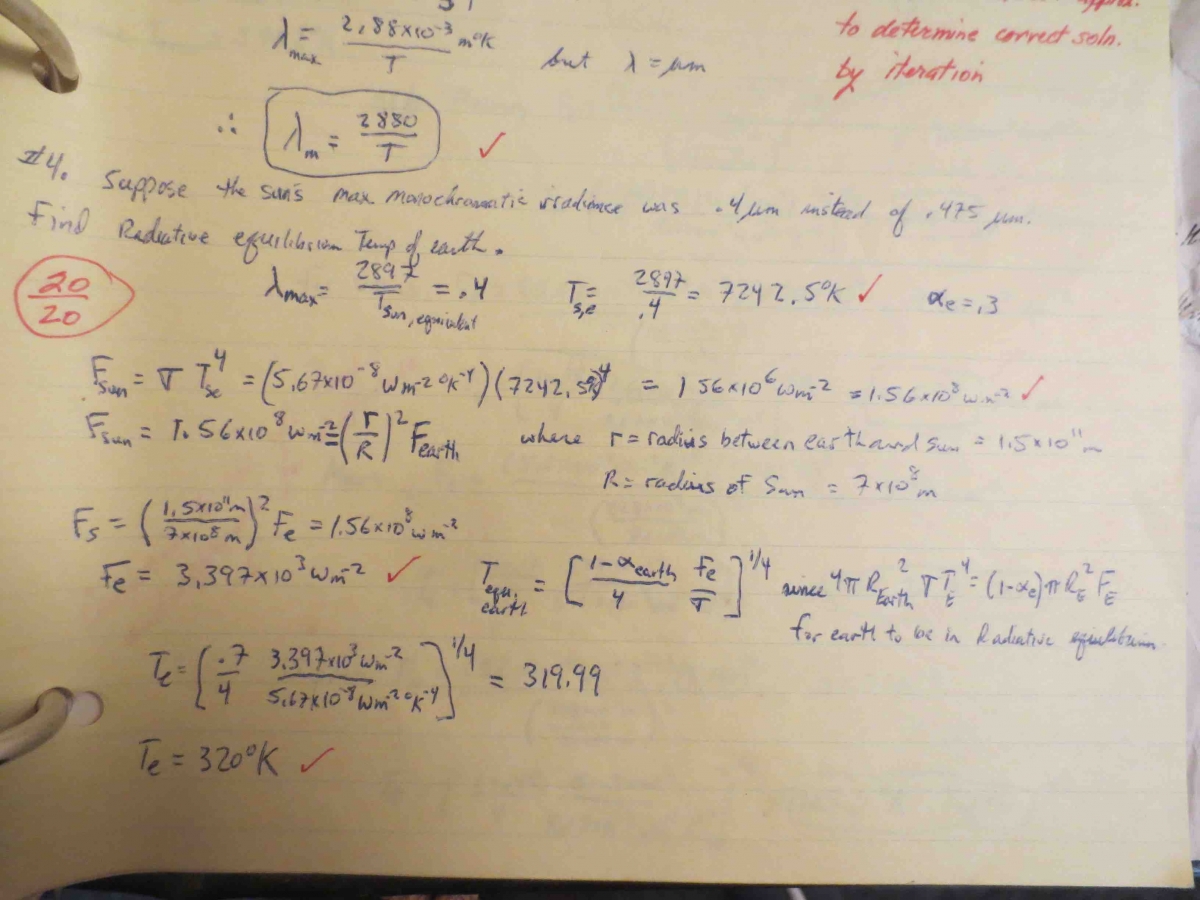 approx.
to determine correct soln.
by iteration
λmax = 2.88×10⁻³/T m°K but λ = μm
∴ λm = 2880/T ✓
#4. Suppose the sun's max monochromatic irradiance was .4 μm instead of .475 μm.
Find Radiative equilibrium Temp of earth.
20/20
λmax = 2897/Tsun, equivalent = .4 Ts,e = 2897/.4 = 7242.5°K ✓ αe = .3
Fsun = σ Tse⁴ = (5.67×10⁻⁸ Wm⁻² °K⁻⁴)(7242.5°K)⁴ = 156×10⁶ Wm⁻² = 1.56×10⁸ Wm⁻² ✓
Fsun = 1.56×10⁸ Wm⁻² = (r/R)² Fearth where r = radius between earth and sun = 1.5×10¹¹ m
R = radius of Sun = 7×10⁸ m
Fs = (1.5×10¹¹m/7×10⁸m)² Fe = 1.56×10⁸ Wm⁻²
Fe = 3.397×10³ Wm⁻² ✓ Tequ. earth = [1-αearth/4 Fe/σ]^1/4 since 4π REarth² σ TE⁴ = (1-αe)π RE² FE
for earth to be in Radiative equilibrium.
Te = [.7/4 3.397×10³ Wm⁻²/5.67×10⁻⁸ Wm⁻² °K⁻⁴]^1/4 = 319.99
Te = 320°K ✓